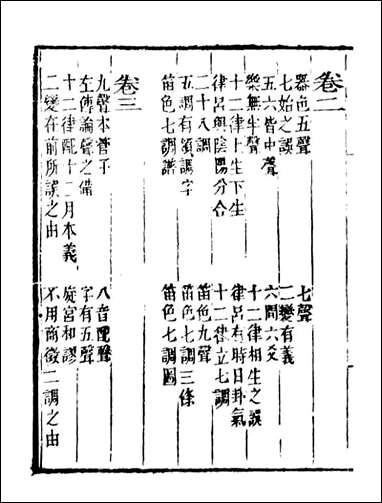 卷二
器色五聲　七聲
七始之誤　二變有義
五六皆中聲　六間六爻
樂無半聲　十二律相生之誤
十二律上生下生　律呂有時日卦氣
律呂與陰陽分合　十二律立七調
二十八調　笛色九聲
五調有領調字　笛色七調三條
笛色七調譜　笛色七調圖
卷三
九聲本管子　八音配聲
左傳論聲之備　字有五聲
十二律配十二月本義　旋宮和謬
二變在前所誤之由　不用商徵二調之由